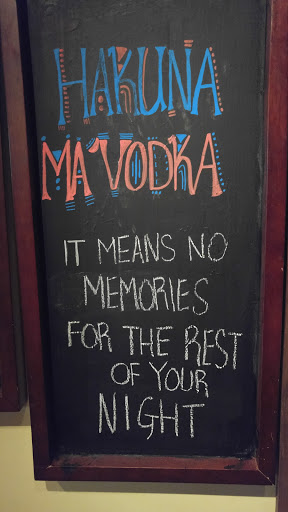 HAKUNA
MA'VODKA
IT MEANS NO
MEMORIES
FOR THE REST
OF YOUR
NIGHT